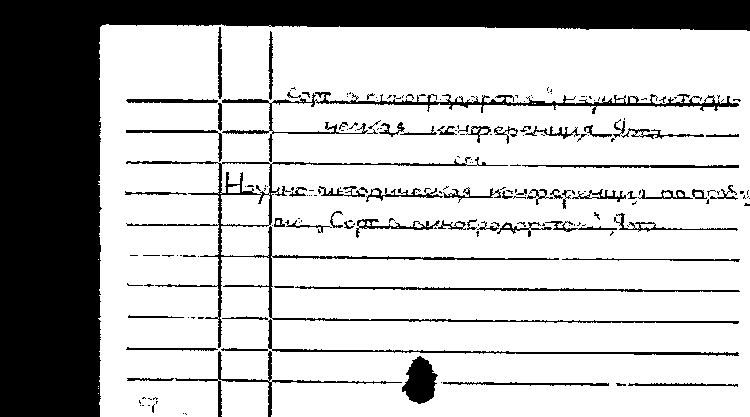 Сорт в виноградарстве", научно-методи-
ческая конференция, Ялта.
см.
Научно-методическая конференция по пробл
ме „Сорт в виноградарстве" Ялта